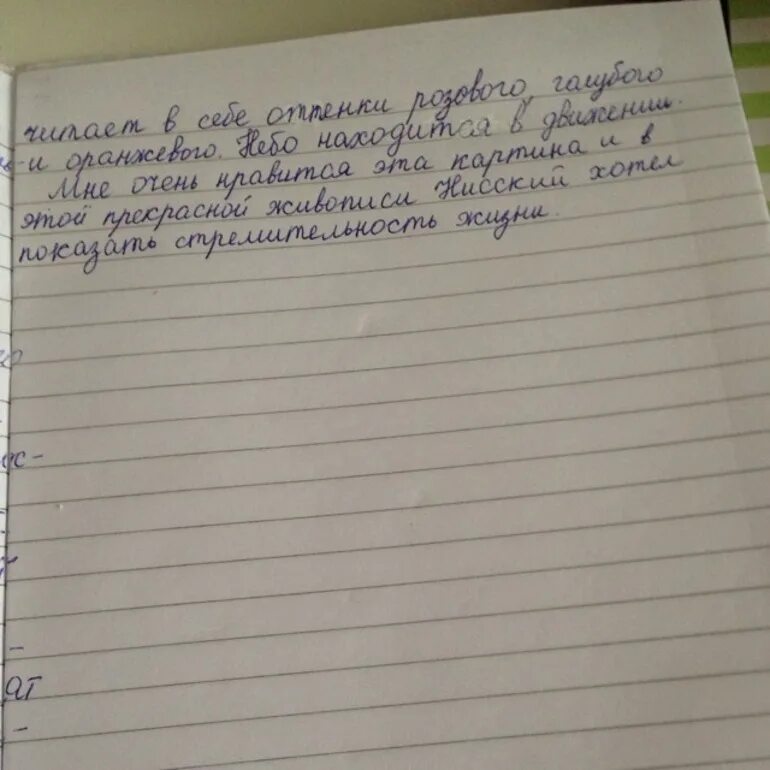 читает в себе оттенки розового, голубого
и оранжевого. Небо находится в движении.
Мне очень нравится эта картина и в
этой прекрасной живописи Нисский хотел
показать стремительность жизни.
ос-
-
ят
-